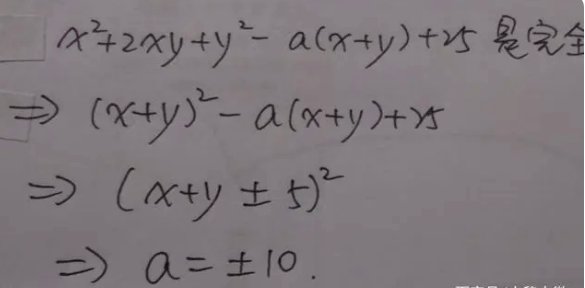 x²+2xy+y²-a(x+y)+25是完全
⇒ (x+y)²-a(x+y)+25
⇒ (x+y±5)²
⇒ a=±10.